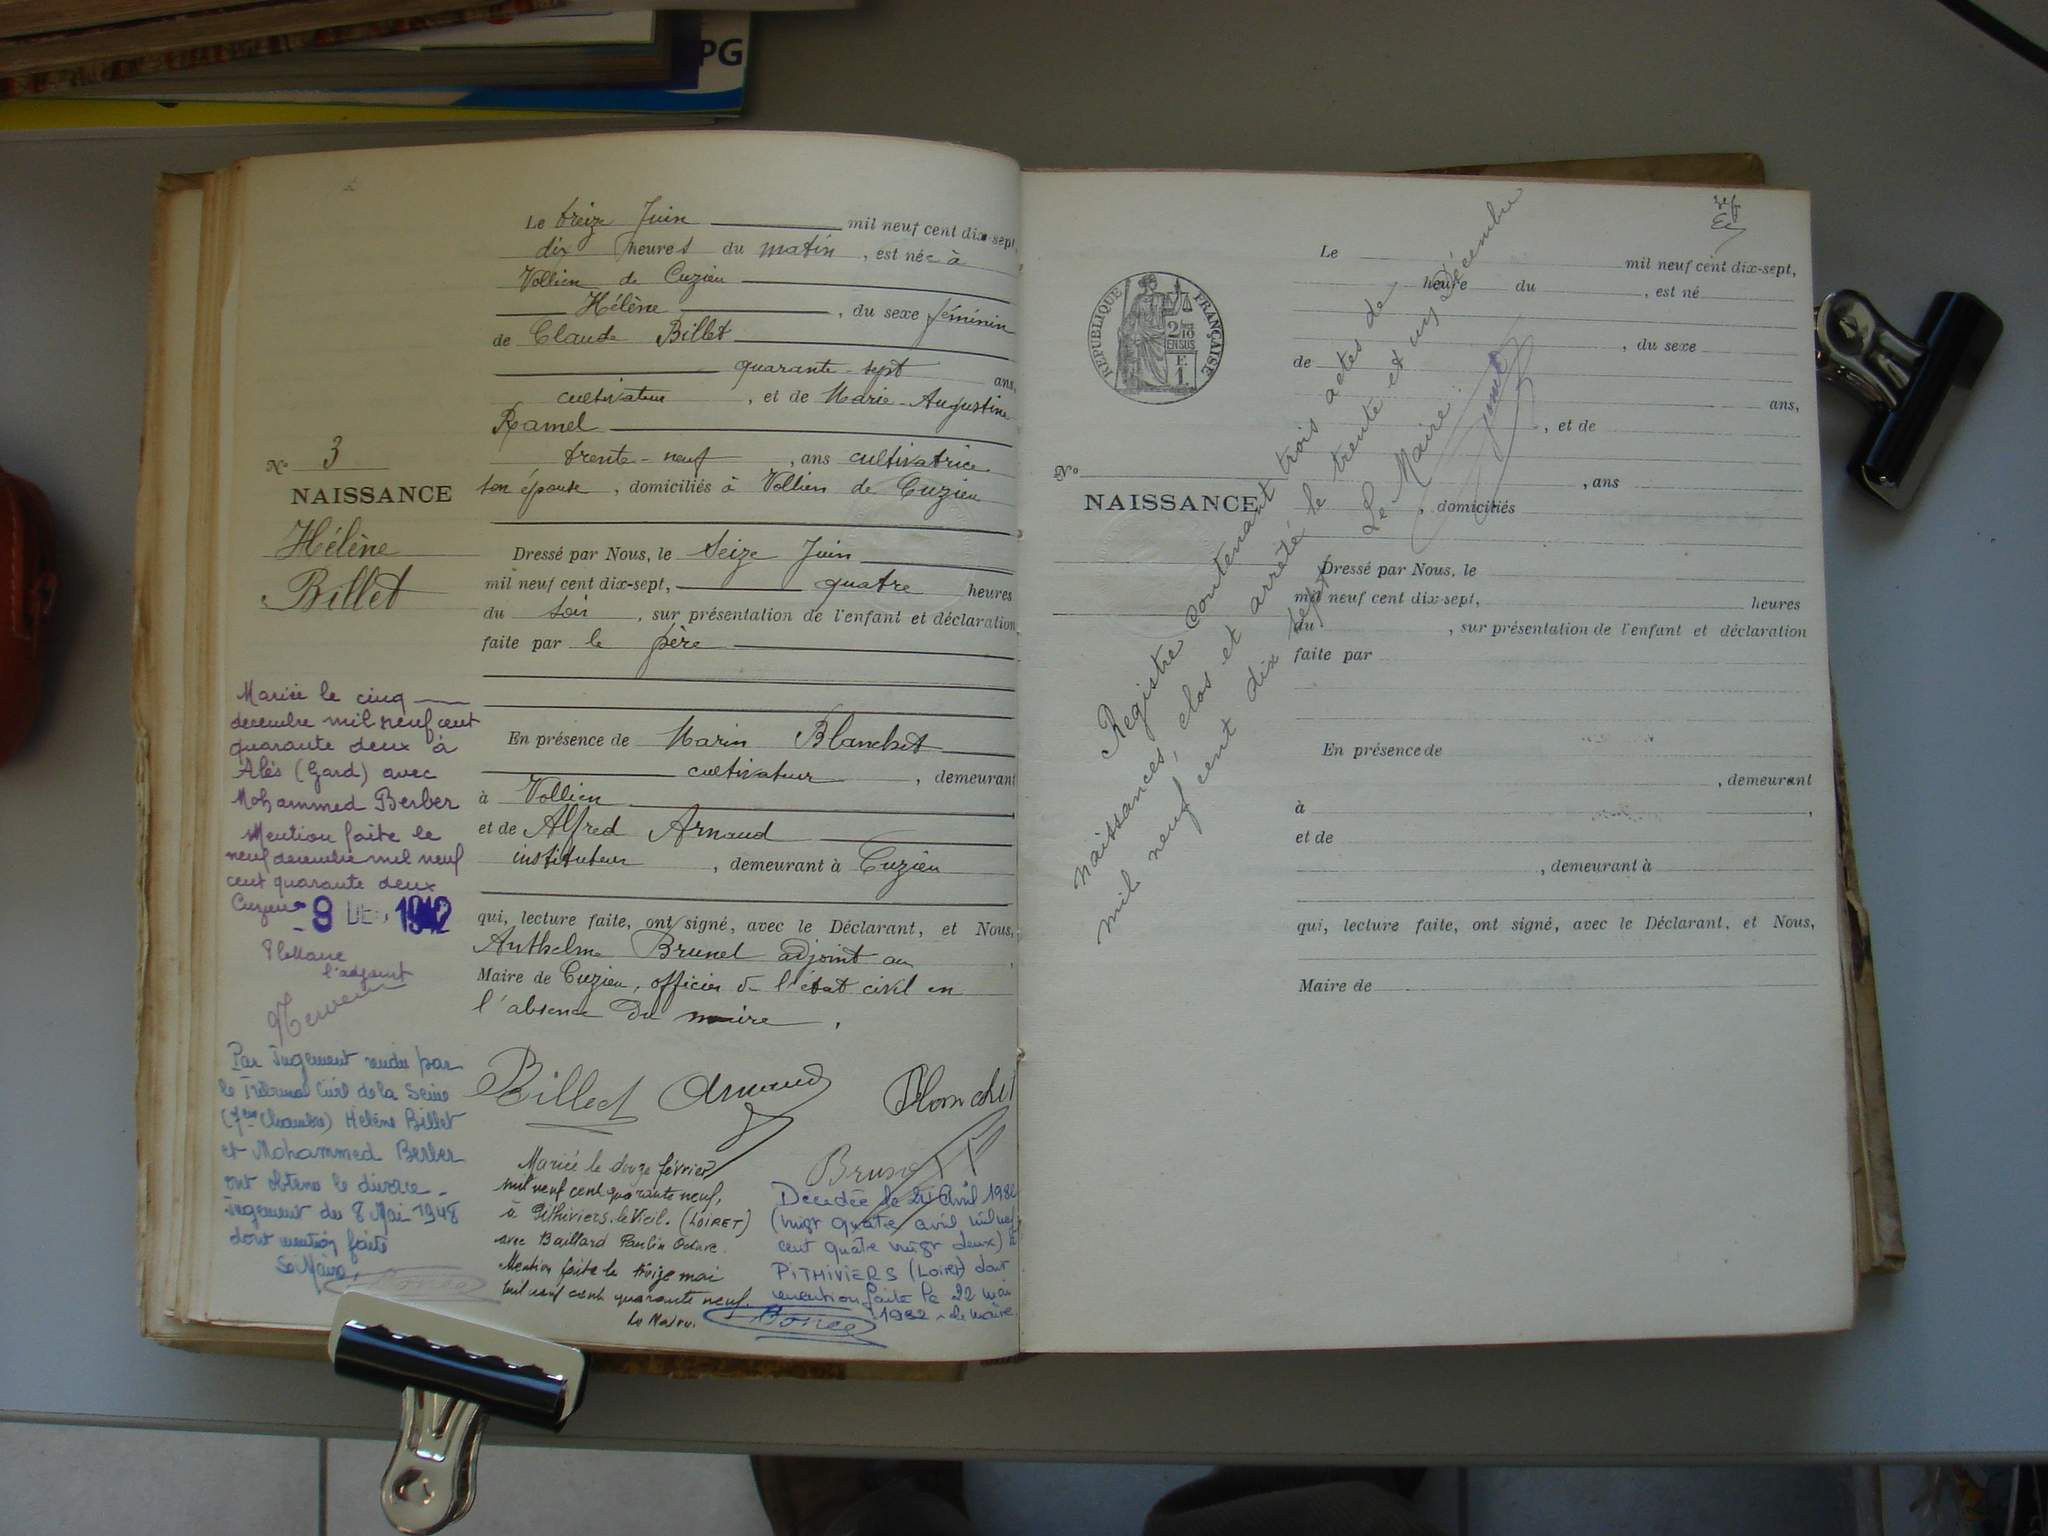 PG
Le treize Juin mil neuf cent dix-sept,
dix heures du matin, est née à
Vollien de Cuzieu
Hélène, du sexe féminin
de Claude Billet
quarante-sept ans,
cultivateur, et de Marie-Augustine
Ramel
trente-neuf, ans cultivatrice
son épouse, domiciliés à Vollien de Cuzieu
N° 3
NAISSANCE
Hélène
Billet
Dressé par Nous, le Seize Juin
mil neuf cent dix-sept, quatre heures
du soir, sur présentation de l'enfant et déclaration
faite par le père
En présence de Marin Blanchet
cultivateur, demeurant
à Vollien
et de Alfred Arnaud
instituteur, demeurant à Cuzieu
qui, lecture faite, ont signé, avec le Déclarant, et Nous,
Anthelme Brunet adjoint au
Maire de Cuzieu, officier de l'état civil en
l'absence du maire.
Billet Arnaud Blanchet
Mariée le cinq
décembre mil neuf cent
quarante deux à
Alès (Gard) avec
Mohammed Berber
Mention faite le
neuf décembre mil neuf
cent quarante deux
Cuzieu - 9 DEC 1942
l'adjoint
Par Jugement rendu par
le Tribunal Civil de la Seine
(7ème Chambre) Hélène Billet
et Mohammed Berber
ont obtenu le divorce -
Jugement du 8 Mai 1948
dont mention faite
Le Maire,
Mariée le douze février
mil neuf cent quarante neuf,
à Pithiviers-le-Vieil. (LOIRET)
avec Baillard Paulin Octave.
Mention faite le treize mai
mil neuf cent quarante neuf.
Le Maire.
Décédée le 24 Avril 1982
(vingt quatre avril mil neuf
cent quatre vingt deux) à
PITHIVIERS (Loiret) dont
mention faite le 22 mai
1982 - le maire
REPUBLIQUE FRANÇAISE
2/10
EN SUS
Le mil neuf cent dix-sept,
heure du, est né
, du sexe
de
ans,
, et de
N°
, ans
NAISSANCE
, domiciliés
Dressé par Nous, le
mil neuf cent dix-sept, heures
du, sur présentation de l'enfant et déclaration
faite par
En présence de
, demeurant
à
et de
, demeurant à
qui, lecture faite, ont signé, avec le Déclarant, et Nous,
Maire de
Registre contenant trois actes de
naissances, clos et arrêté le trente et un Décembre
mil neuf cent dix sept
Le Maire